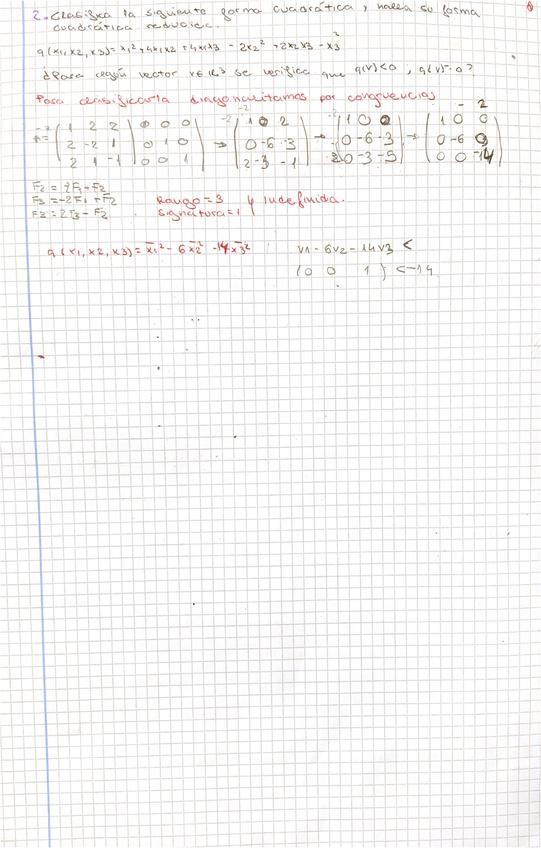 2. Clasifica la siguiente forma cuadrática, halla su forma
cuadrática reducida.
q(x1, x2, x3) = x1² + 4x1x2 + 4x1x3 - 2x2² + 2x2x3 - x3²
¿Para algún vector v ∈ R³ se verifica que q(v) < 0, q(v) = 0?
Para clasificarla diagonalizamos por congruencias
- 2
A = ( 1 2 2 | 0 0 0 ) → ( 1 0 2 ) → ( 1 0 0 ) → ( 1 0 0 )
2 -2 1 | 0 1 0 0 -6 -3 0 -6 -3 0 -6 0
2 1 -1 | 0 0 1 2 -3 -1 0 -3 -5 0 0 -14
F2 = -2F1 + F2
F3 = -2F1 + F2
F3 = 2F3 - F2
Rango = 3
Signatura = 1 } Indefinida.
q(x1, x2, x3) = x̄1² - 6x̄2² - 14x̄3²
v1 - 6v2 - 14v3 <
(0 0 1) < -14